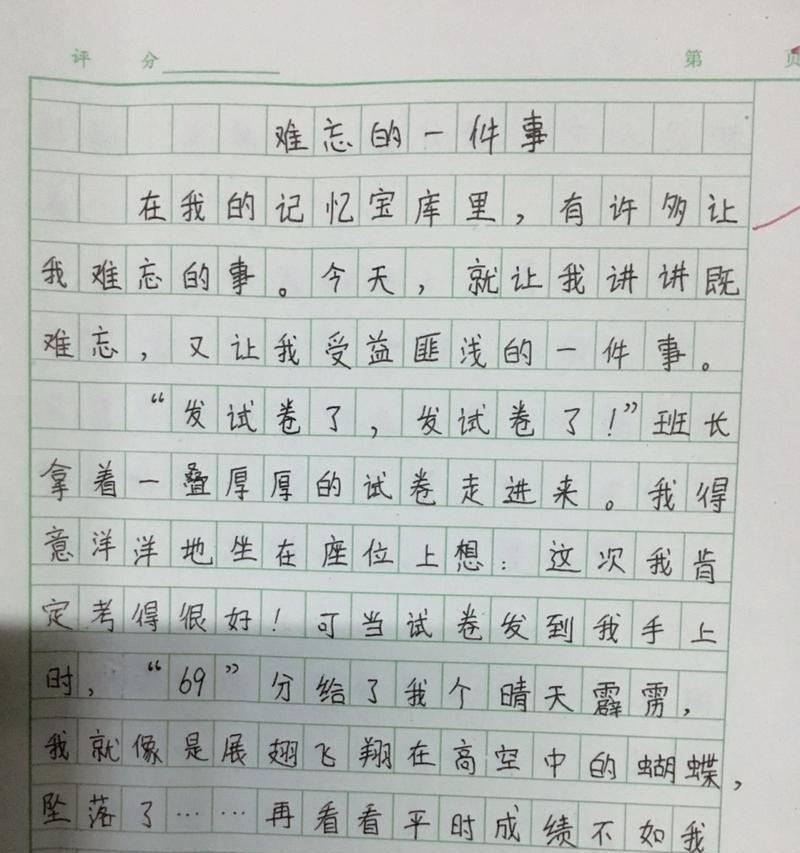 评 分 第 页
难忘的一件事
在我的记忆宝库里，有许多让
我难忘的事。今天，就让我讲讲既
难忘，又让我受益匪浅的一件事。
“发试卷了，发试卷了！”班长
拿着一叠厚厚的试卷走进来。我得
意洋洋地坐在座位上想：这次我肯
定考得很好！可当试卷发到我手上
时，“69”分给了我个晴天霹雳，
我就像是展翅飞翔在高空中的蝴蝶，
坠落了……再看看平时成绩不如我